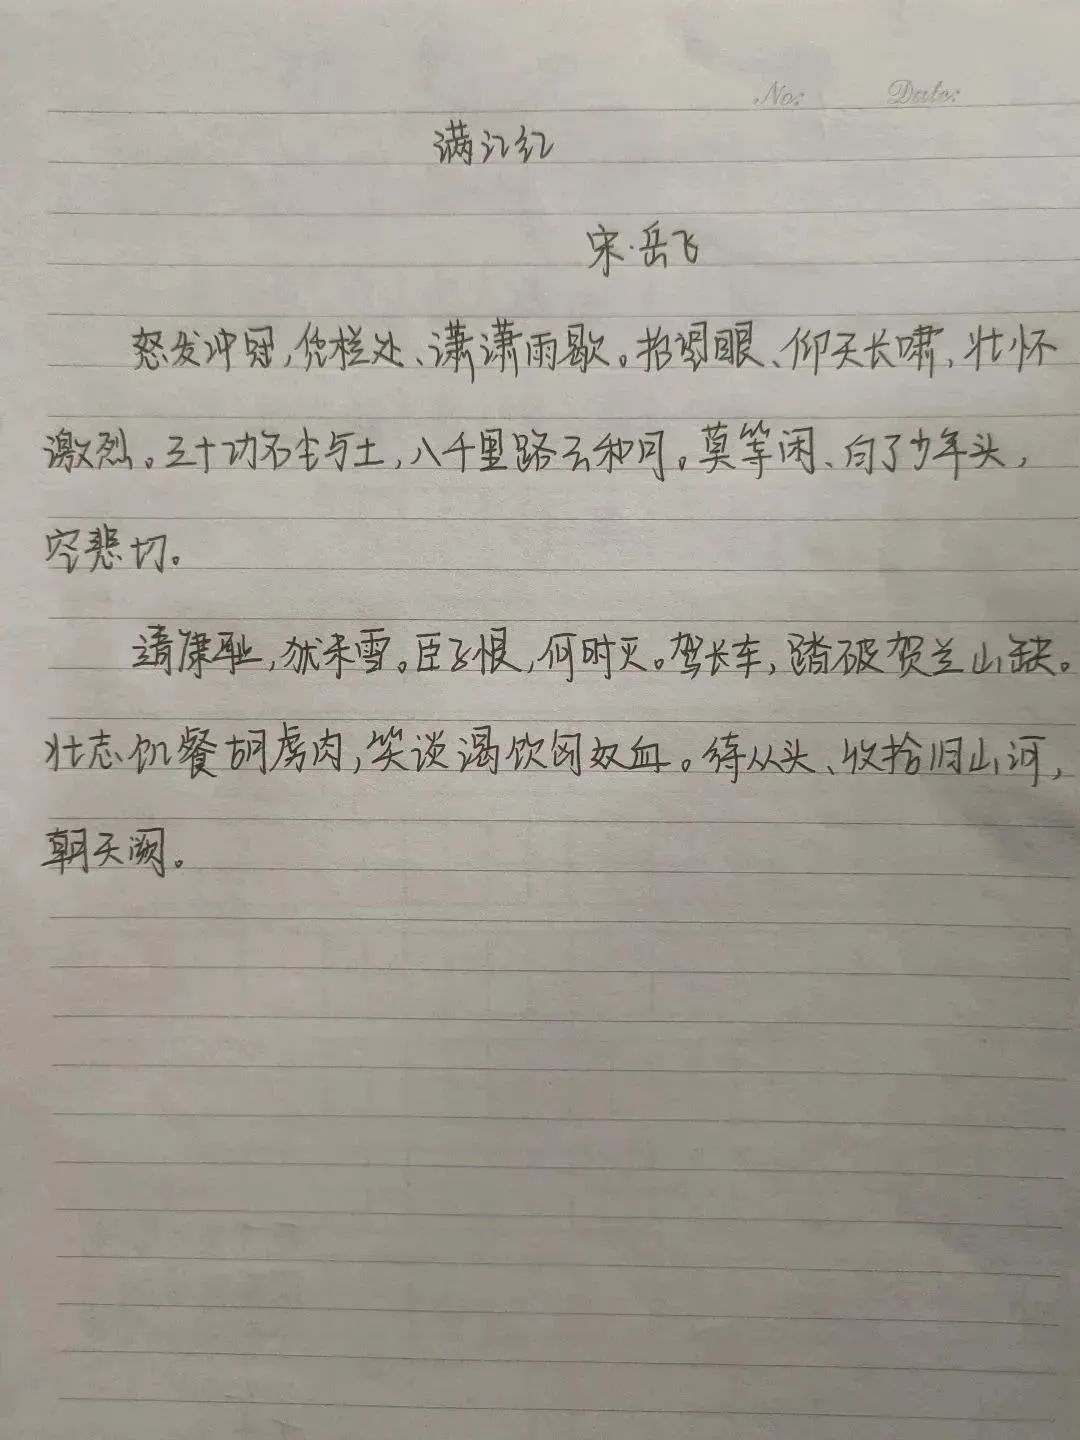 No: Date:
满江红
宋·岳飞
怒发冲冠,凭栏处、潇潇雨歇。抬望眼、仰天长啸,壮怀
激烈。三十功名尘与土,八千里路云和月。莫等闲、白了少年头,
空悲切。
靖康耻,犹未雪。臣子恨,何时灭。驾长车,踏破贺兰山缺。
壮志饥餐胡虏肉,笑谈渴饮匈奴血。待从头、收拾旧山河,
朝天阙。